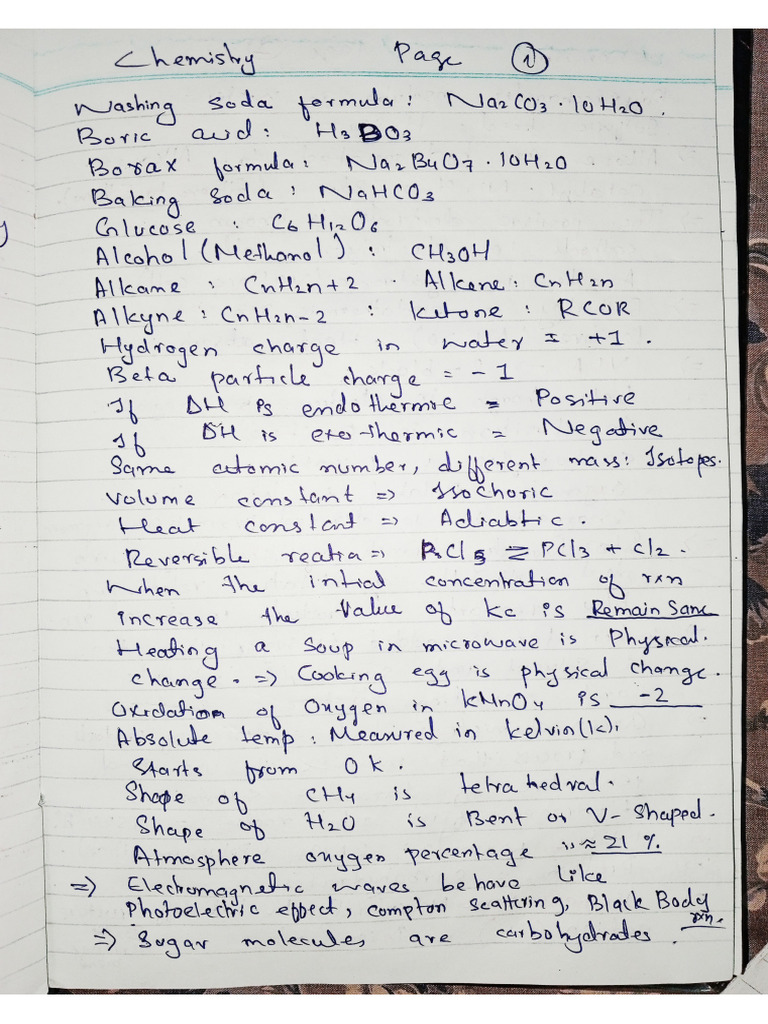 Chemistry Page 1
Washing Soda formula: Na2CO3 · 10H2O.
Boric acid: H3BO3
Borax formula: Na2B4O7 · 10H2O
Baking Soda: NaHCO3
Glucose : C6H12O6
Alcohol (Methanol) : CH3OH
Alkane : CnH2n+2 · Alkene: CnH2n
Alkyne: CnH2n-2 : Ketone : RCOR
Hydrogen charge in water = +1.
Beta particle charge = -1
If ΔH is endothermic = Positive
If ΔH is exo-thermic = Negative
Same atomic number, different mass: Isotopes.
Volume constant => Isochoric
Heat constant => Adiabtic.
Reversible reatia => PCl5 ⇌ PCl3 + Cl2.
When the intial concentration of rxn
increase the value of Kc is Remain Same
Heating a Soup in microwave is Physical.
change. => Cooking egg is physical change.
Oxidation of Oxygen in KMnO4 is -2
Absolute temp: Measured in Kelvin(K),
Starts from 0 K.
Shape of CH4 is tetrahedral.
Shape of H2O is Bent or V-shaped.
Atmosphere oxygen percentage is ≈ 21 %.
=> Electromagnetic waves behave like
Photoelectric effect, Compton Scattring, Black Body
rxn.
=> Sugar molecules are carbohydrates.